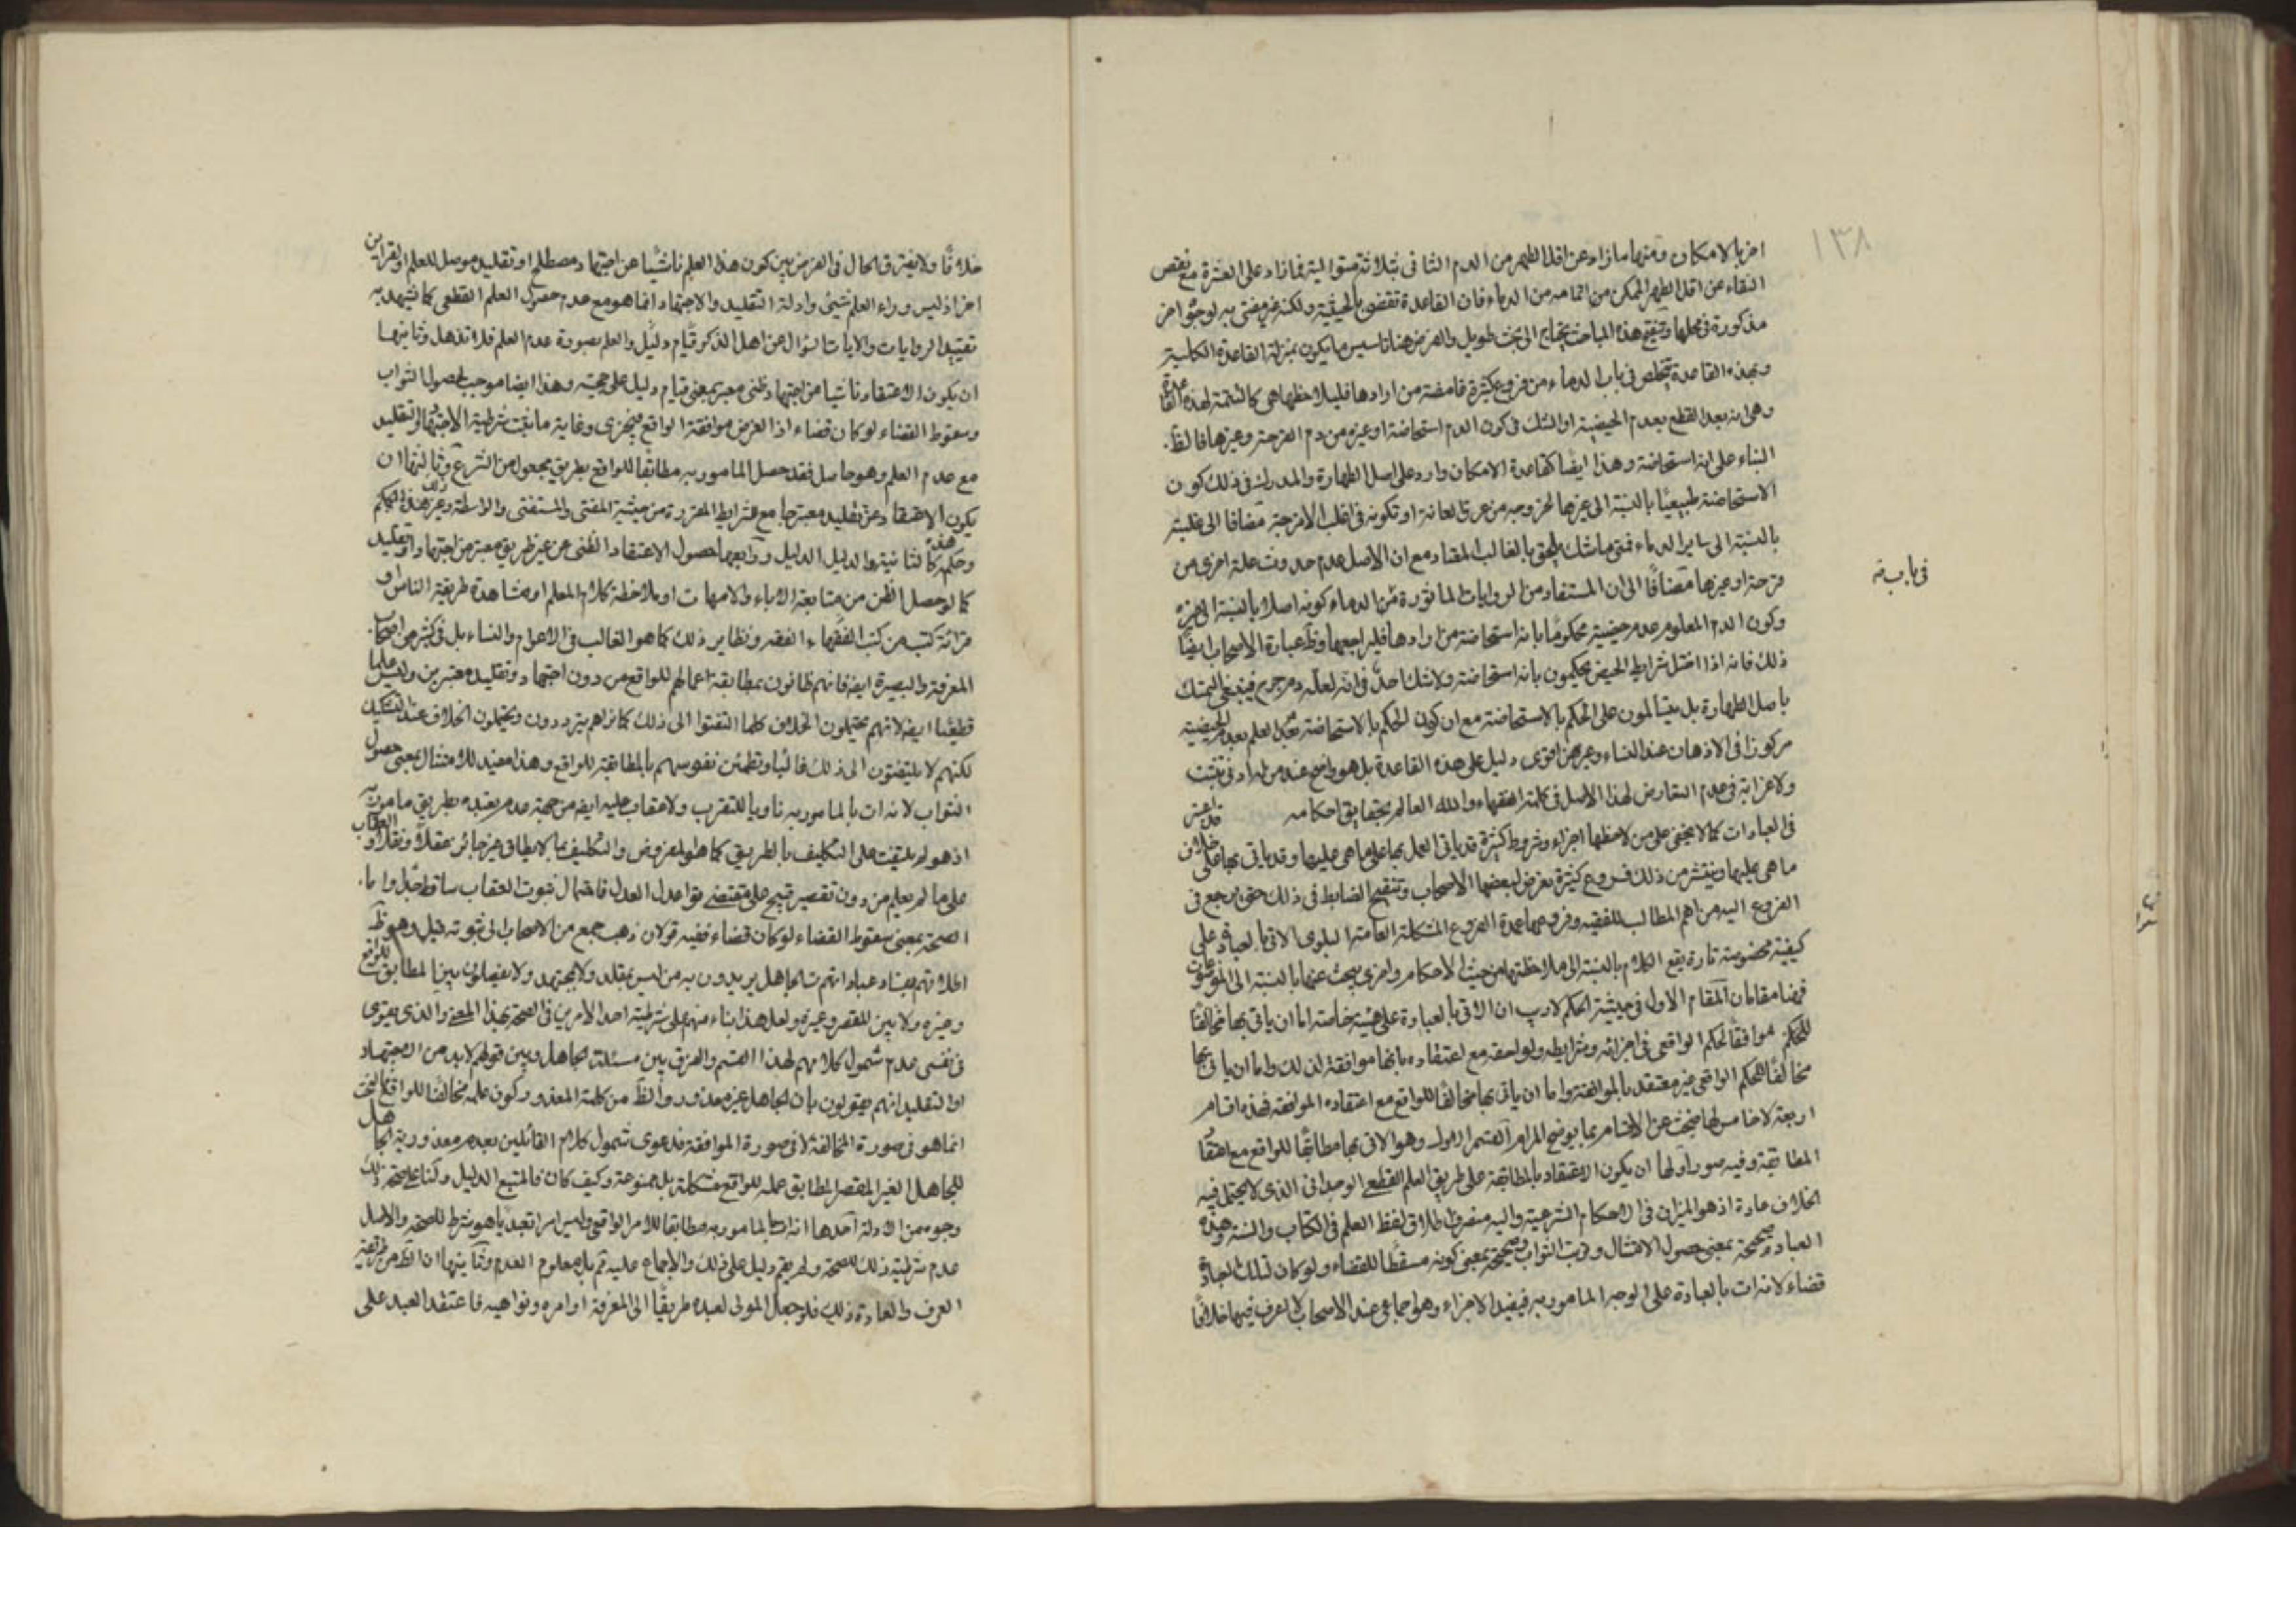 ١٣٨
اخر بالامكان ومنها ما زاد عن اقل الطهر من الدم الثانى بثلاثة متوالية فما زاد على العشرة مع نقص
النقاء عن اقل الطهر الممكن من اتمامه من الدماء فان القاعدة تقتضى بالحيضية ولكنه غير مفتى به لوجوه اخر
مذكورة فى محلها وتنقيح هذه المباحث يحتاج الى بحث طويل والغرض هنا تاسيس ما يكون بمنزلة القاعدة الكلية
وبهذه القاعدة يتخلص فى باب الدماء من فروع كثيرة غامضة من ارادها فليلاحظها هى كالتتمة لهذه القاعدة
وهى انه بعد القطع بعدم الحيضية او الشك فى كون الدم استحاضة او غيره من دم القرحة وغيرها فالظ
البناء على انه استحاضة وهذا ايضا كقاعدة الامكان وارد على اصل الطهارة والمدرك فى ذلك كون
الاستحاضة طبيعيا بالنسبة الى غيرها لخروجه من عرق العانة او تكونه فى اغلب الامزجة مضافا الى غلبته
بالنسبة الى ساير الدماء فمتى ما شك يلحق بالغالب المعتاد مع ان الاصل عدم حدوث علة اخرى من
قرحة او غيرها مضافا الى ان المستفاد من الروايات الماثورة فى الدماء كونه اصلا بالنسبة الى غيره
فى باب منه
وكون الدم المعلوم عدم حيضيته محكوما بانه استحاضة من ارادها فليراجعها وظ عبارة الاصحاب ايضا
ذلك فانه اذا اختل شرايط الحيض يحكمون بانه استحاضة ولا شك احد فى انه لعله دم جرح فينبغى التمسك
باصل الطهارة بل يتسالمون على الحكم بالاستحاضة مع ان كون الحكم بالاستحاضة بعد العلم بعدم الحيضية
مركوزا فى الاذهان عند النساء وغيرهن اقوى دليل على هذه القاعدة بل هو واضح عند من له ادنى تتبع
ولا غرابة فى عدم التعارض لهذا الاصل فى كلمة الفقهاء والله العالم بحقايق احكامه
فى العبادات كما لا يخفى على من لاحظها اجزاء وشروط كثيرة قد ياتى العمل بها على ما هى عليها وقد ياتى بها على خلاف
ما هى عليها وينتشر من ذلك فروع كثيرة تعرض لبعضها الاصحاب وتنقيح الضابط فى ذلك حتى يرجع فى
الفروع اليه من اهم المطالب للفقيه وفروعها عمدة الفروع المشكلة العامة البلوى الاتى بالعبادة على
كيفية مخصوصة تارة يقع الكلام بالنسبة الى ملاحظتها من حيث الاحكام واخرى يبحث عنها بالنسبة الى الموضوعات
فهنا مقامان المقام الاول فى حيثية الحكم لا ريب ان الاتى بالعبادة على هيئة خاصة اما ان ياتى بها مخالفا
للحكم موافقا لحكم الواقعى فى اجزائه وشرايطه ولواحقه مع اعتقاده بانها موافقة لذلك واما ان ياتى بها
مخالفا للحكم الواقعى غير معتقد بالموافقة واما ان ياتى بها مخالفا للواقع مع اعتقاده الموافقة فهذه اقسام
اربعة لا خامس لها فنبحث عن الاقسام بما يوضح المرام القسم الاول وهو الاتى بها مطابقا للواقع مع اعتقاد
المطابقة وفيه صور اولها ان يكون الاعتقاد بالمطابقة على طريق العلم القطعى الوجدانى الذى لا يحتمل فيه
الخلاف عادة اذ هو الميزان فى الاحكام الشرعية واليه منصرف اطلاق لفظ العلم فى الكتاب والسنة وهذه
العبادة صحيحة بمعنى حصول الامتثال وترتب الثواب وصحيحة بمعنى كونه مسقطا للقضاء ولو كان لتلك العبادة
قضاء لانه ات بالعبادة على الوجه المامور به فيفيد الاجزاء وهو اجماعى عند الاصحاب لا نعرف فيها خلافا
خلافا ولا يفترق الحال فى الفرض بين كون هذا العلم ناشيا عن اجتهاد مصطلح او تقليد موصل للعلم او لقراين
اخر اذ ليس وراء العلم شيئ وادلة التقليد والاجتهاد انما هو مع عدم حصول العلم القطعى كما تشهد به
تقييد الروايات والايات السؤال عن اهل الذكر قيام دليل والعلم بصورة عدم العلم فلا تذهل وثانيها
ان يكون الاعتقاد ناشيا من اجتهاد ظنى معتبر بمعنى قيام دليل على حجيته وهذا ايضا موجب لحصول الثواب
وسقوط القضاء لو كان قضاء اذ الغرض موافقة الواقع فيجزى وغاية ما ثبت شرطية الاجتهاد والتقليد
مع عدم العلم وهو حاصل فقد حصل المامور به مطابقا للواقع بطريق مجعول من الشرع وثالثها ان
يكون الاعتقاد عن تقليد معتبر جامع لشرايط المقررة من حيثية المفتى والمستفتى والواسطة وغير ذلك
وحكم هذه كالثانية والدليل الدليل ورابعها حصول الاعتقاد الظنى عن غير طريق معتبر من اجتهاد او تقليد
كما لو حصل الظن من متابعة الاباء والامهات او ملاحظة كلام المعلم او مشاهدة طريقة الناس او
قرائة كتب من كتب الفقهاء الفقه ونظاير ذلك كما هو الغالب فى الاعوام والنساء بل فى كثير من اصحاب
المعرفة والبصيرة ايض فانهم ظانون بمطابقة اعمالهم للواقع من دون اجتهاد وتقليد معتبرين وليس علما
قطعيا ايض لانهم يحتملون الخلاف كلما التفتوا الى ذلك كما نراهم يترددون ويحتملون الخلاف عند التشكيك
لكنهم لا يلتفتون الى ذلك غالبا وتطمئن نفوسهم بالمطابقة للواقع وهذا مفيد للامتثال بمعنى حصول
الثواب لانه ات بالمامور به ناويا للتقرب ولا عقاب عليه ايض من جهة عدم تعبده بطريق مامور به
اذ هو لم يلتفت على التكليف بالطريق كما هو المفروض والتكليف بما لا يطاق غير جائز عقلا ونقلا والعقاب
على ما لم يعلم من دون تقصير قبيح على مقتضى قواعد العدل فاحتمال ثبوت العقاب ساقط جدا واما
الصحة بمعنى سقوط القضاء لو كان قضاء ففيه قولان ذهب جمع من الاصحاب الى ثبوته قيل وهو ظ
اطلاقهم بفساد عبادات الجاهل يريدون به من ليس بمقلد ولا مجتهد ولا يفصلون بين المطابق للواقع
وغيره ولا بين المقصر وغيره ولعل هذا بناء منهم على شرطية احد الامرين فى الصحة بهذا المعنى والذى يقوى
فى نفسى عدم شمول كلامهم لهذا القسم والفرق بين مسئلة الجاهل وبين قولهم لابد من الاجتهاد
او التقليد انهم يقولون بان الجاهل غير معذور والظ من كلمة المعذور كون عمله مخالفا للواقع فالبحث
انما هو فى صورة المخالفة لا فى صورة الموافقة فدعوى شمول كلام القائلين بعدم معذورية الجاهل
للجاهل الغير المقصر المطابق عمله للواقع مشكلة بل ممنوعة وكيف كان فالمتبع الدليل ولنا على صحة ذلك
وجوه من الادلة احدها انه ات بالمامور به مطابقا للامر الواقعى وليس امرا تعبديا هو شرط للصحة والاصل
عدم شرطية ذلك للصحة ولم يقم دليل على ذلك والاجماع عليه ثم بل معلوم العدم وثانيها ان الظ من طريقة
العرف والعادة ذلك فلو جعل المولى لعبده طريقا الى المعرفة اوامره ونواهيه فاعتقد العبد على